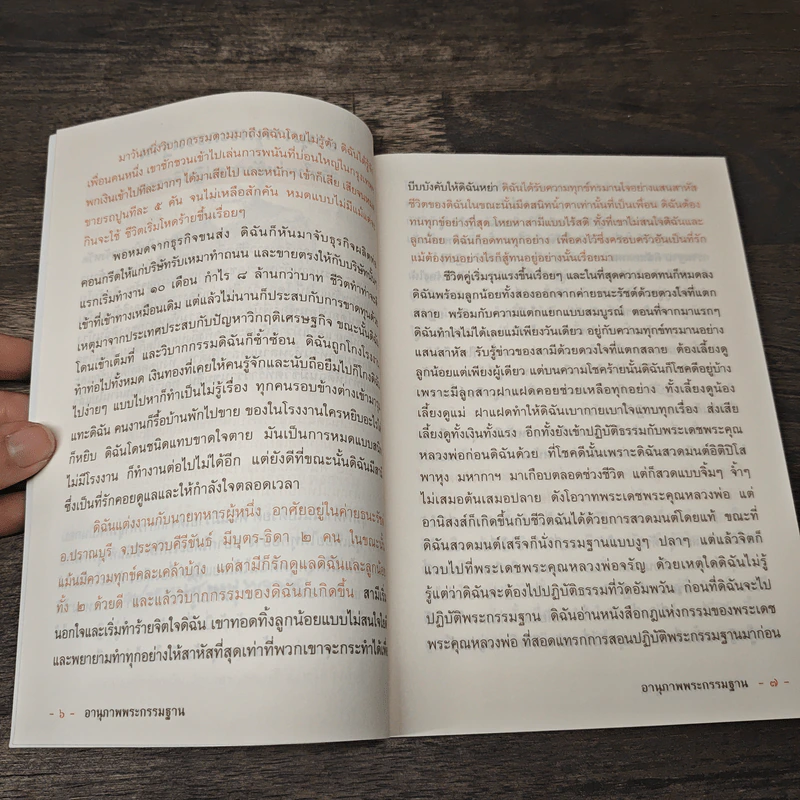 มาวันหนึ่งวิบากกรรมตามมาถึงดิฉันโดยไม่รู้ตัว ดิฉันได้
เพื่อนคนหนึ่ง เขาชักชวนเข้าไปเล่นการพนันที่บ่อนใหญ่ในกรุงเทพฯ
พกเงินเข้าไปทีละมากๆ ได้มาเสียไป และหนักๆ เข้าก็เสีย เสียจน
ขายรถปูนทีละ ๕ คัน จนไม่เหลือสักคัน หมดแบบไม่มีแม้แต่
กินจะใช้ ชีวิตเริ่มโหดร้ายขึ้นเรื่อยๆ
พอหมดจากธุรกิจขนส่ง ดิฉันก็หันมาจับธุรกิจผลิต
คอนกรีตให้แก่บริษัทรับเหมาทำถนน และขายตรงให้กับบริษัท
แรกเริ่มทำงาน ๑๐ เดือน กำไร ๘ ล้านกว่าบาท ชีวิตทำท่าจะ
เข้าที่เข้าทางเหมือนเดิม แต่แล้วไม่นานก็ประสบกับการขาดทุน
เหตุมาจากประเทศประสบกับปัญหาวิกฤติเศรษฐกิจ ขณะนั้นดิฉัน
โดนเข้าเต็มที่ และวิบากกรรมดิฉันก็ซ้ำซ้อน ดิฉันถูกโกงโรงงาน
ทำท่อไปทั้งหมด เงินทองที่เคยให้คนรู้จักและนับถือยืมไปก็โกงดิฉัน
ไปง่ายๆ แบบไปหาก็ทำเป็นไม่รู้เรื่อง ทุกคนรอบข้างต่างเข้ามา
แทะดิฉัน คนงานก็รื้อบ้านพักไปขาย ของในโรงงานใครหยิบอะไรได้
ก็หยิบ ดิฉันโดนชนิดแทบขาดใจตาย มันเป็นการหมดแบบ
ไม่มีโรงงาน ก็ทำงานต่อไปไม่ได้อีก แต่ยังดีที่ขณะนั้นดิฉันมีสามี
ซึ่งเป็นที่รักคอยดูแลและให้กำลังใจตลอดเวลา
ดิฉันแต่งงานกับนายทหารผู้หนึ่ง อาศัยอยู่ในค่ายธนะรัชต์
อ.ปราณบุรี จ.ประจวบคีรีขันธ์ มีบุตร-ธิดา ๒ คน ในขณะนั้น
แม้นมีความทุกข์คละเคล้าบ้าง แต่สามีก็รักดูแลดิฉันและลูกน้อย
ทั้ง ๒ ด้วยดี และแล้ววิบากกรรมของดิฉันก็เกิดขึ้น สามีเริ่ม
นอกใจและเริ่มทำร้ายจิตใจดิฉัน เขาทอดทิ้งลูกน้อยแบบไม่สนใจไยดี
และพยายามทำทุกอย่างให้สาหัสที่สุดเท่าที่พวกเขาจะกระทำได้เพื่อ
- ๖ - อานุภาพพระกรรมฐาน
บีบบังคับให้ดิฉันหย่า ดิฉันได้รับความทุกข์ทรมานใจอย่างแสนสาหัส
ชีวิตของดิฉันในขณะนั้นมืดสนิทน้ำตาเท่านั้นที่เป็นเพื่อน ดิฉันต้อง
ทนทุกข์อย่างที่สุด โหยหาสามีแบบไร้สติ ทั้งที่เขาไม่สนใจดิฉันและ
ลูกน้อย ดิฉันก็อดทนทุกอย่าง เพื่อคงไว้ซึ่งครอบครัวอันเป็นที่รัก
แม้ต้องทนอย่างไรก็สู้ทนอยู่อย่างนั้นเรื่อยมา
ชีวิตคู่เริ่มรุนแรงขึ้นเรื่อยๆ และในที่สุดความอดทนก็หมดลง
ดิฉันพร้อมลูกน้อยทั้งสองออกจากค่ายธนะรัชต์ด้วยดวงใจที่แตก
สลาย พร้อมกับความแตกแยกแบบสมบูรณ์ ตอนที่จากมาแรกๆ
ดิฉันทำใจไม่ได้เลยแม้เพียงวันเดียว อยู่กับความทุกข์ทรมานอย่าง
แสนสาหัส รับรู้ข่าวของสามีด้วยดวงใจที่แตกสลาย ต้องเลี้ยงดู
ลูกน้อยแต่เพียงผู้เดียว แต่บนความโชคร้ายนั้นดิฉันก็โชคดีอยู่บ้าง
เพราะมีลูกสาวฝาแฝดคอยช่วยเหลือทุกอย่าง ทั้งเลี้ยงดูน้อง
เลี้ยงดูแม่ ฝาแฝดทำให้ดิฉันเบากายเบาใจแทบทุกเรื่อง ส่งเสีย
เลี้ยงดูทั้งเงินทั้งแรง อีกทั้งยังเข้าปฏิบัติธรรมกับพระเดชพระคุณ
หลวงพ่อก่อนดิฉันด้วย ที่โชคดีนั้นเพราะดิฉันสวดมนต์อิติปิโส
พาหุง มหากาฯ มาเกือบตลอดช่วงชีวิต แต่ก็สวดแบบจิ้มๆ จ้ำๆ
ไม่เสมอต้นเสมอปลาย ดังโอวาทพระเดชพระคุณหลวงพ่อ แต่
อานิสงส์ก็เกิดขึ้นกับชีวิตฉันได้ด้วยการสวดมนต์โดยแท้ ขณะที่
ดิฉันสวดมนต์เสร็จก็นั่งกรรมฐานแบบงูๆ ปลาๆ แต่แล้วจิตก็
แวบไปที่พระเดชพระคุณหลวงพ่อจรัญ ด้วยเหตุใดดิฉันไม่รู้
รู้แต่ว่าดิฉันจะต้องไปปฏิบัติธรรมที่วัดอัมพวัน ก่อนที่ดิฉันจะไป
ปฏิบัติพระกรรมฐาน ดิฉันอ่านหนังสือกฎแห่งกรรมของพระเดช
พระคุณหลวงพ่อ ที่สอดแทรกการสอนปฏิบัติพระกรรมฐานมาก่อน
อานุภาพพระกรรมฐาน - ๗ -